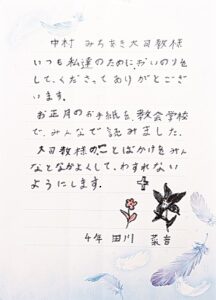 中村 みちあき大司教様
いつも私達のために、おいのりを
して、くださってありがとうござ
います。
お正月のお手紙を教会学校
で、みんなで読みました。
大司教様のことばかけをみん
なとなかよくして、わすれない
ようにします。
4年 田川 菜音